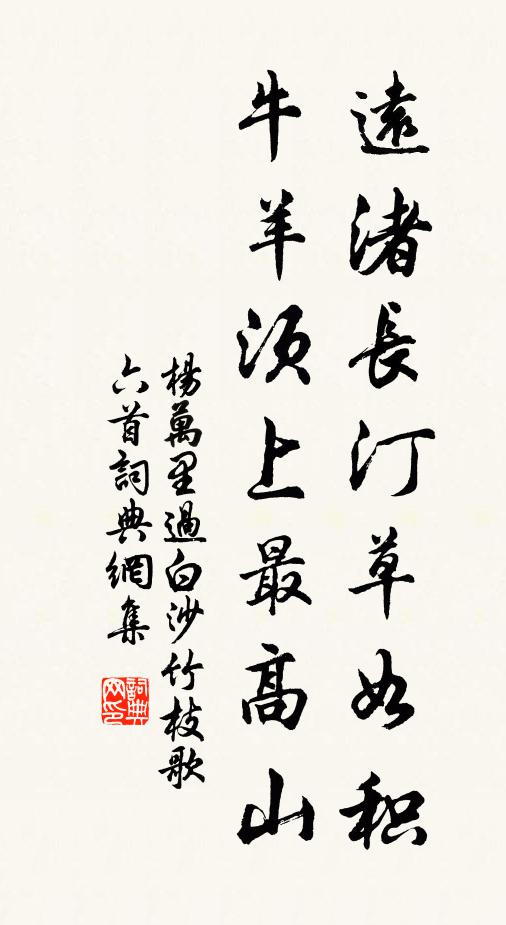 遠渚長汀草如积
牛羊须上最高山
楊萬里過白沙竹枝歌
六首詞典網集
詞典网印